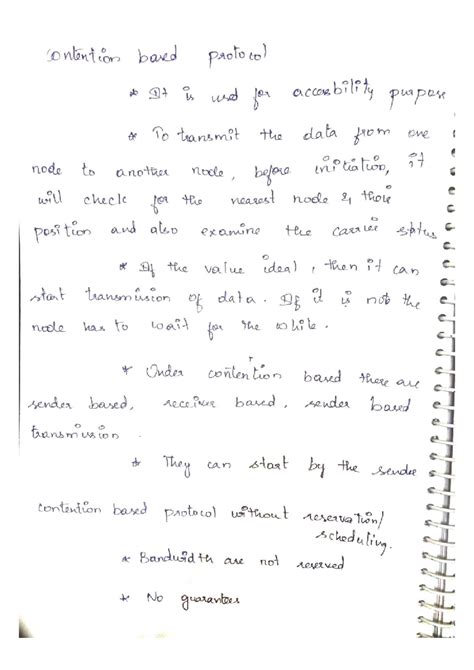 Contention based protocol
* It is used for accessbility purpose
* To transmit the data from one
node to another node, before initiation, it
will check for the nearest node & their
position and also examine the carrier status
* If the value ideal, then it can
start transmission of data. If it is not the
node has to wait for the while.
* Under contention based there are
sender based, receiver based, sender based
transmission.
* They can start by the sender
contention based protocol without reservation/
scheduling.
* Bandwidth are not reserved
* No guarantees